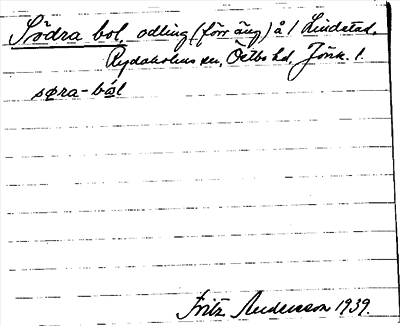 Södra bol, odling (förr äng) å 1 Lindstad,
Rydaholms sn, Östbo hd, Jönk. l.
søra-bál
Fritz Andersson 1939.